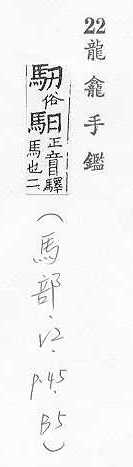 22 龍龕手鑑
俗馹正音驛馬也二
(馬部.V2.p.45.B5)